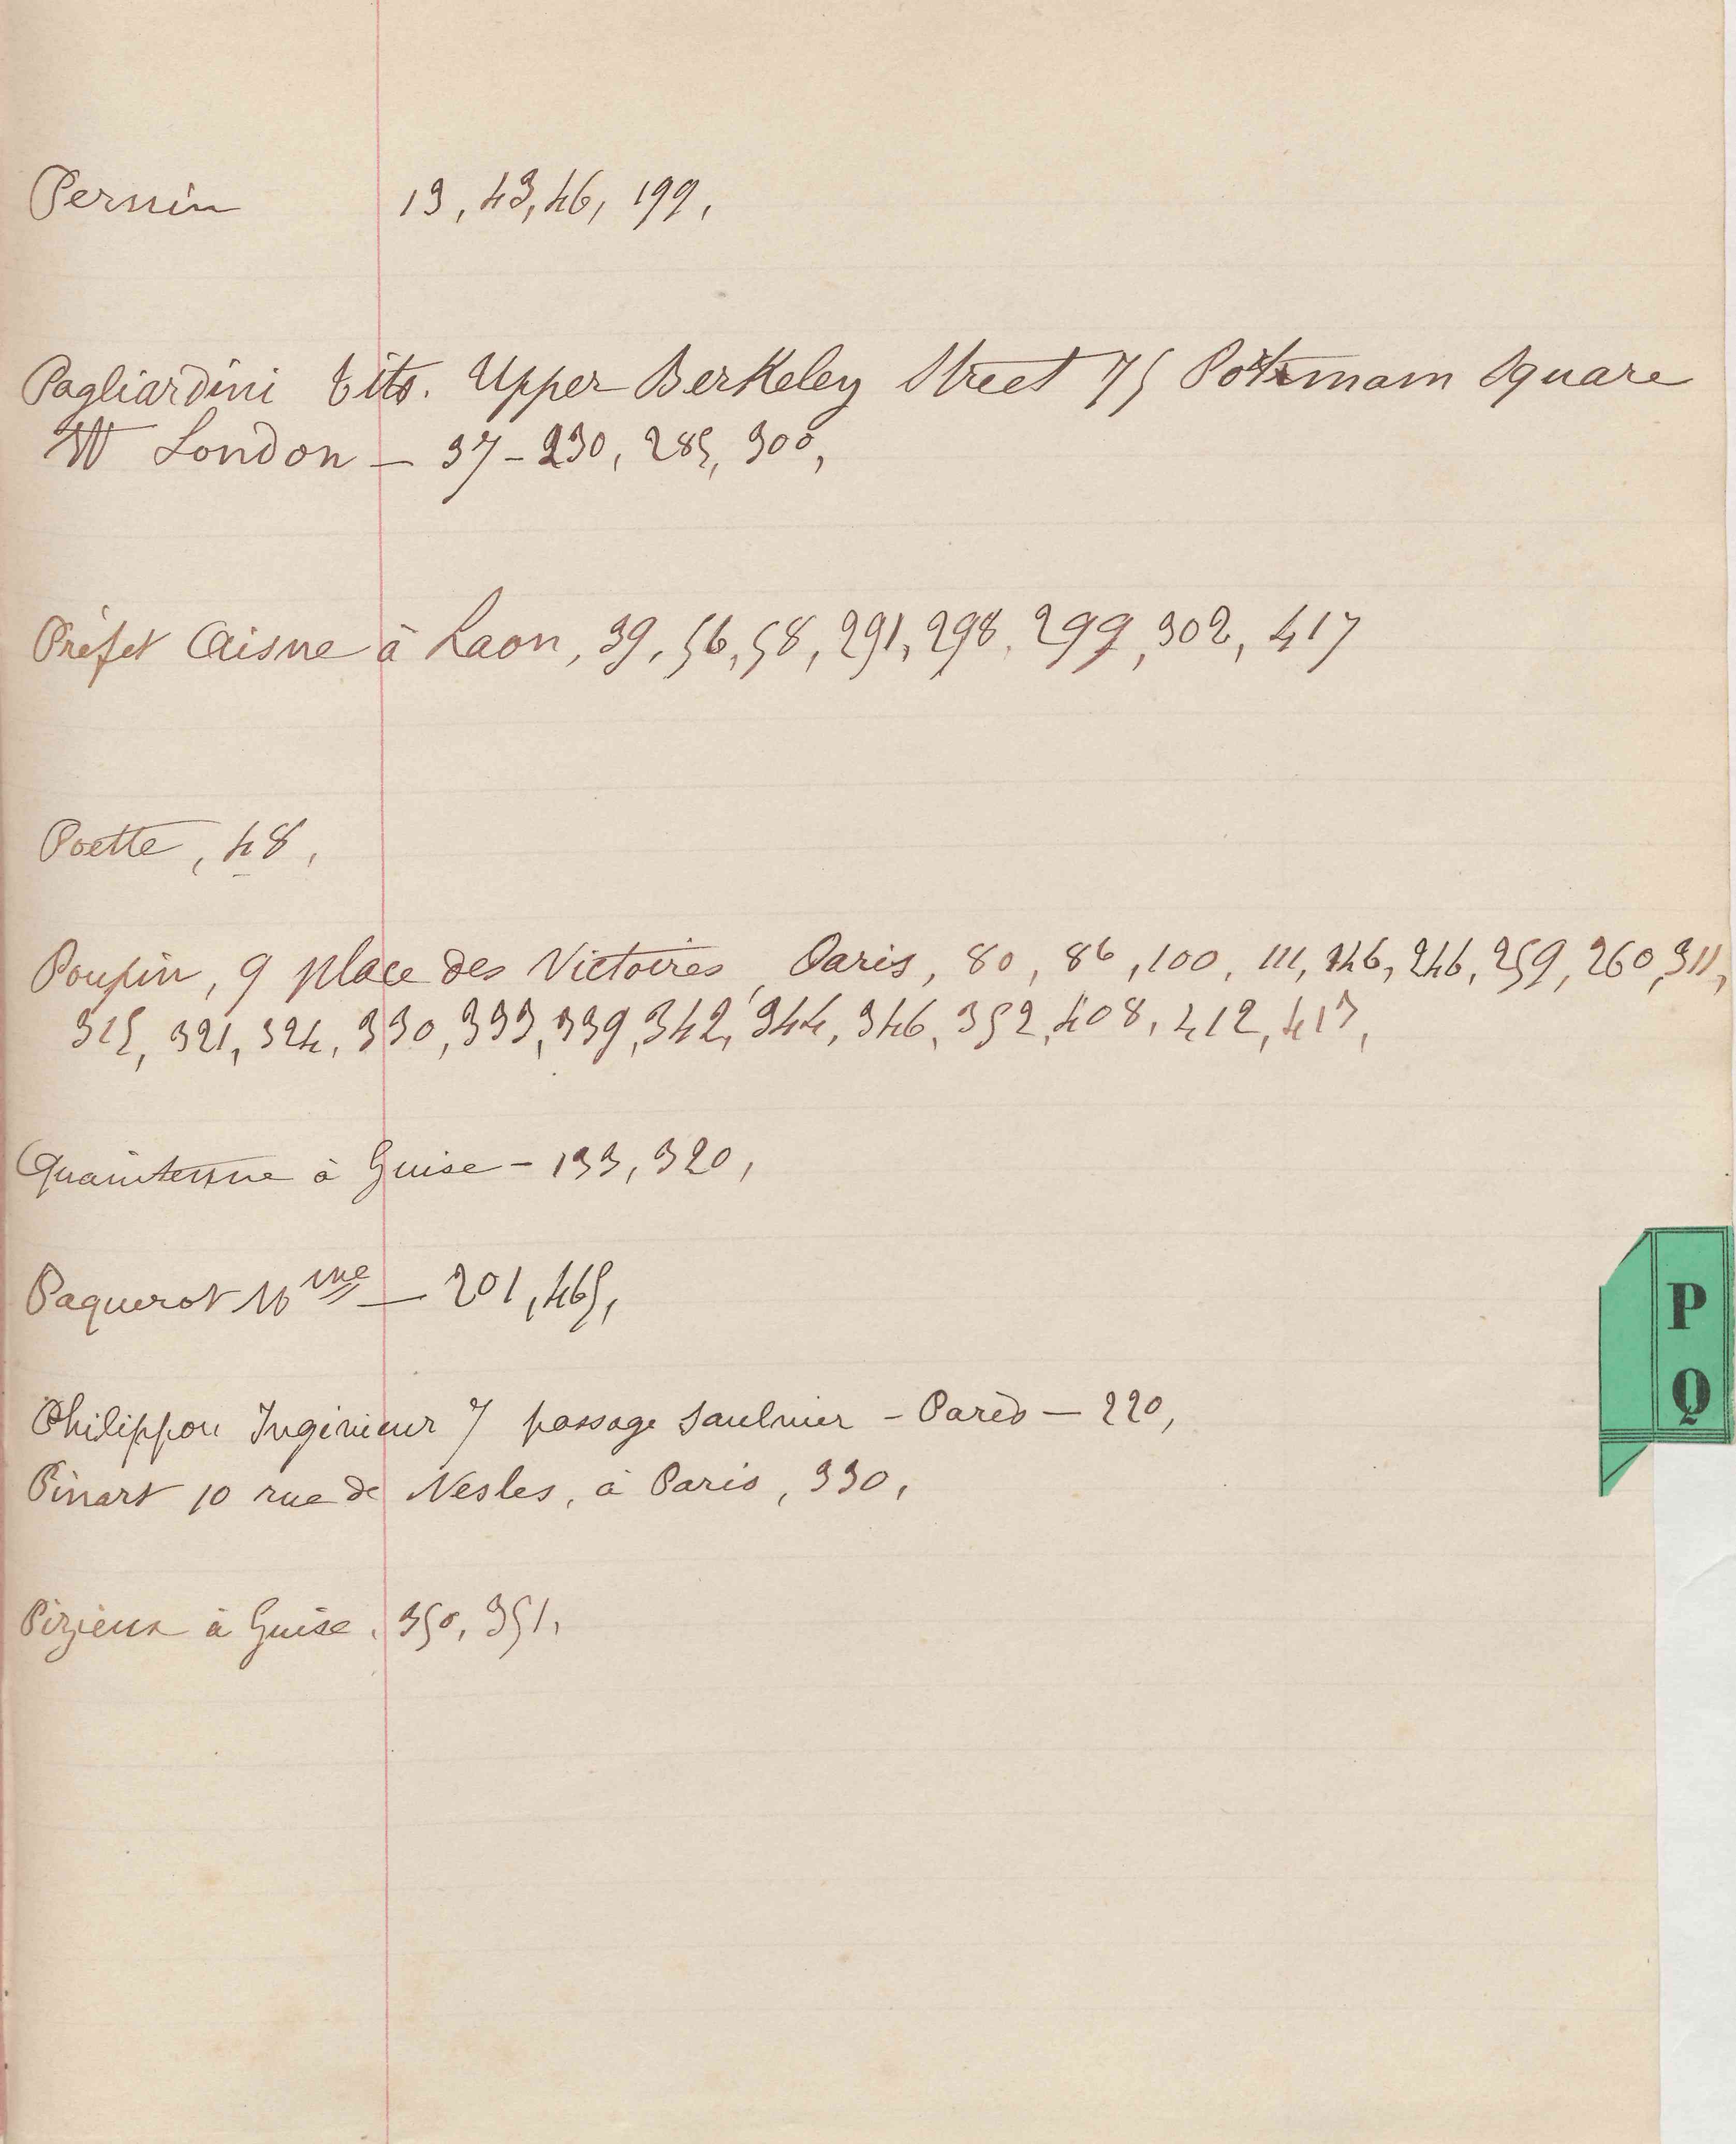 Pernin 13, 43, 46, 199,
Pagliardini tito. Upper Berkeley Street 75 Portmam Square
W London - 37 - 230, 285, 300,
Préfet Aisne à Laon, 39, 56, 58, 291, 298, 299, 302, 417
Poette, 48,
Poupin, 9 place des Victoires, Paris, 80, 86, 100, 111, 146, 246, 259, 260, 311,
315, 321, 324, 330, 333, 339, 342, 344, 346, 352, 408, 412, 413,
Quaintenne à Guise - 133, 320,
Paquerot Mme - 201, 465,
P
Q
Philippon Ingénieur 7 passage Saulnier - Paris - 220,
Pinart 10 rue de Nesles, à Paris, 330,
Pirjeux à Guise, 350, 351,